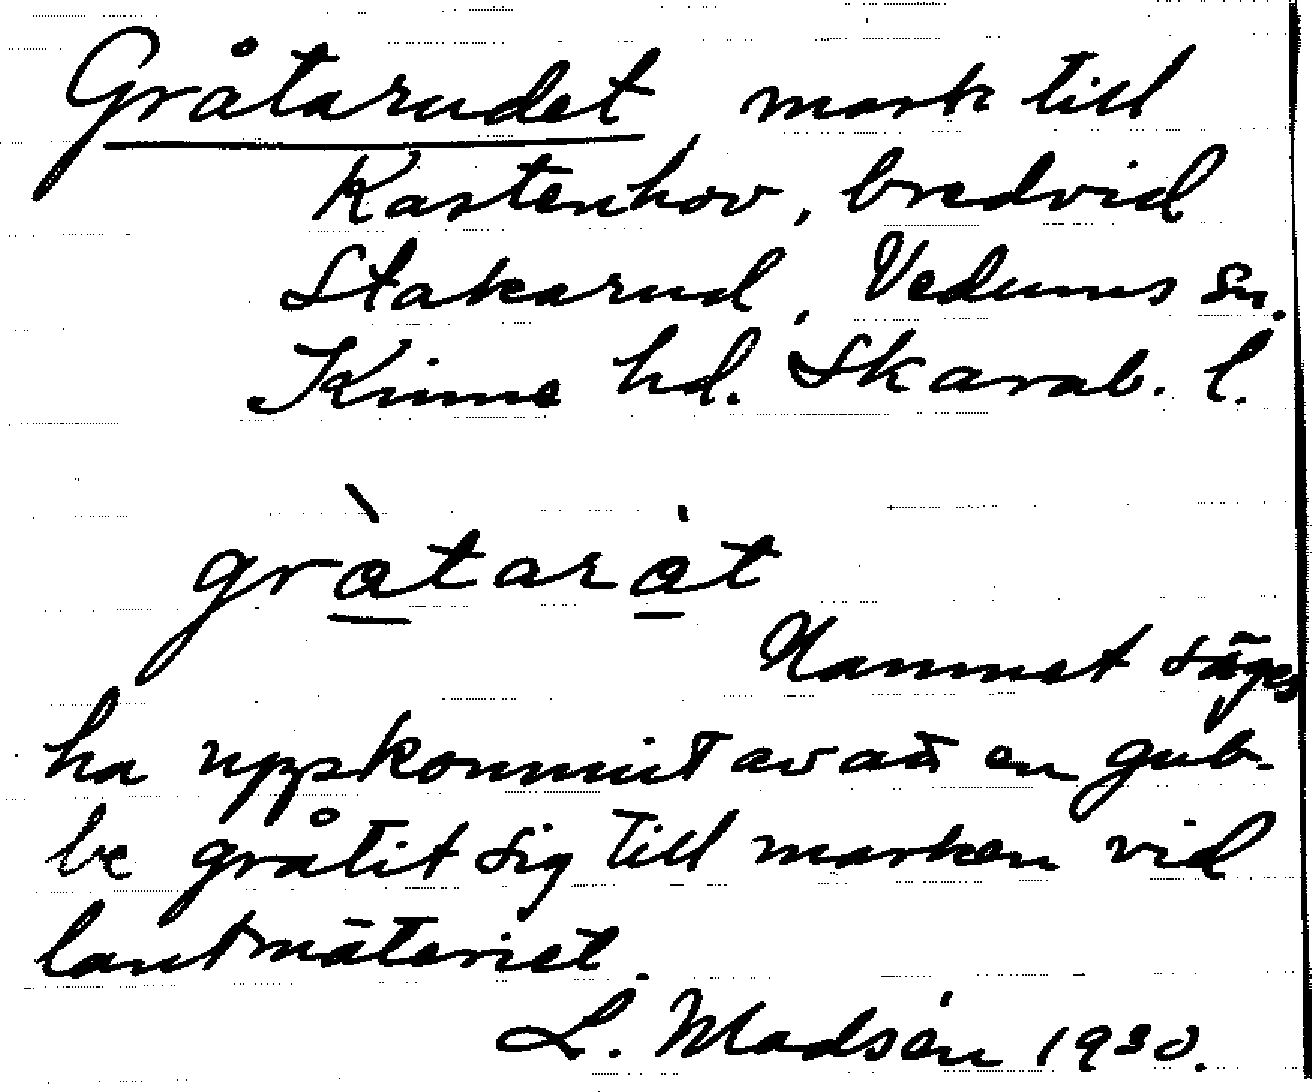 Gråtarudet, mark till
Kastenhov, bredvid
Stakarud, Vedums sn.
Kinne hd. Skarab. l.
gràtarȧt
Namnet säges
ha uppkommit av att en gub-
be gråtit sig till marken vid
lantmäteriet.
L. Madsén 1930.